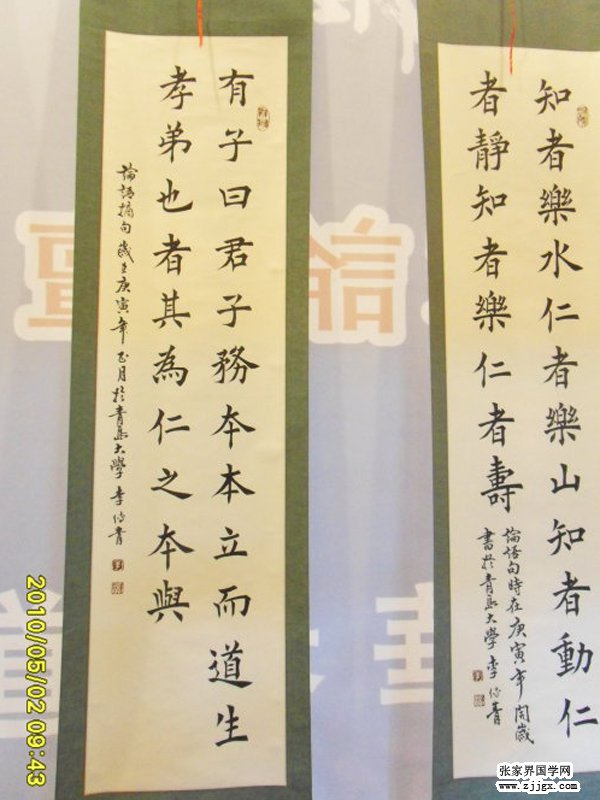 知者樂水仁者樂山知者動仁
者靜知者樂仁者壽
論語句時在庚寅年開歲
書於青島大學李青
有子曰君子務本本立而道生
孝弟也者其為仁之本與
論語摘句歲在庚寅年正月於青島大學李青
2010/05/02 09:43
张家界国学网
www.zjjgx.com